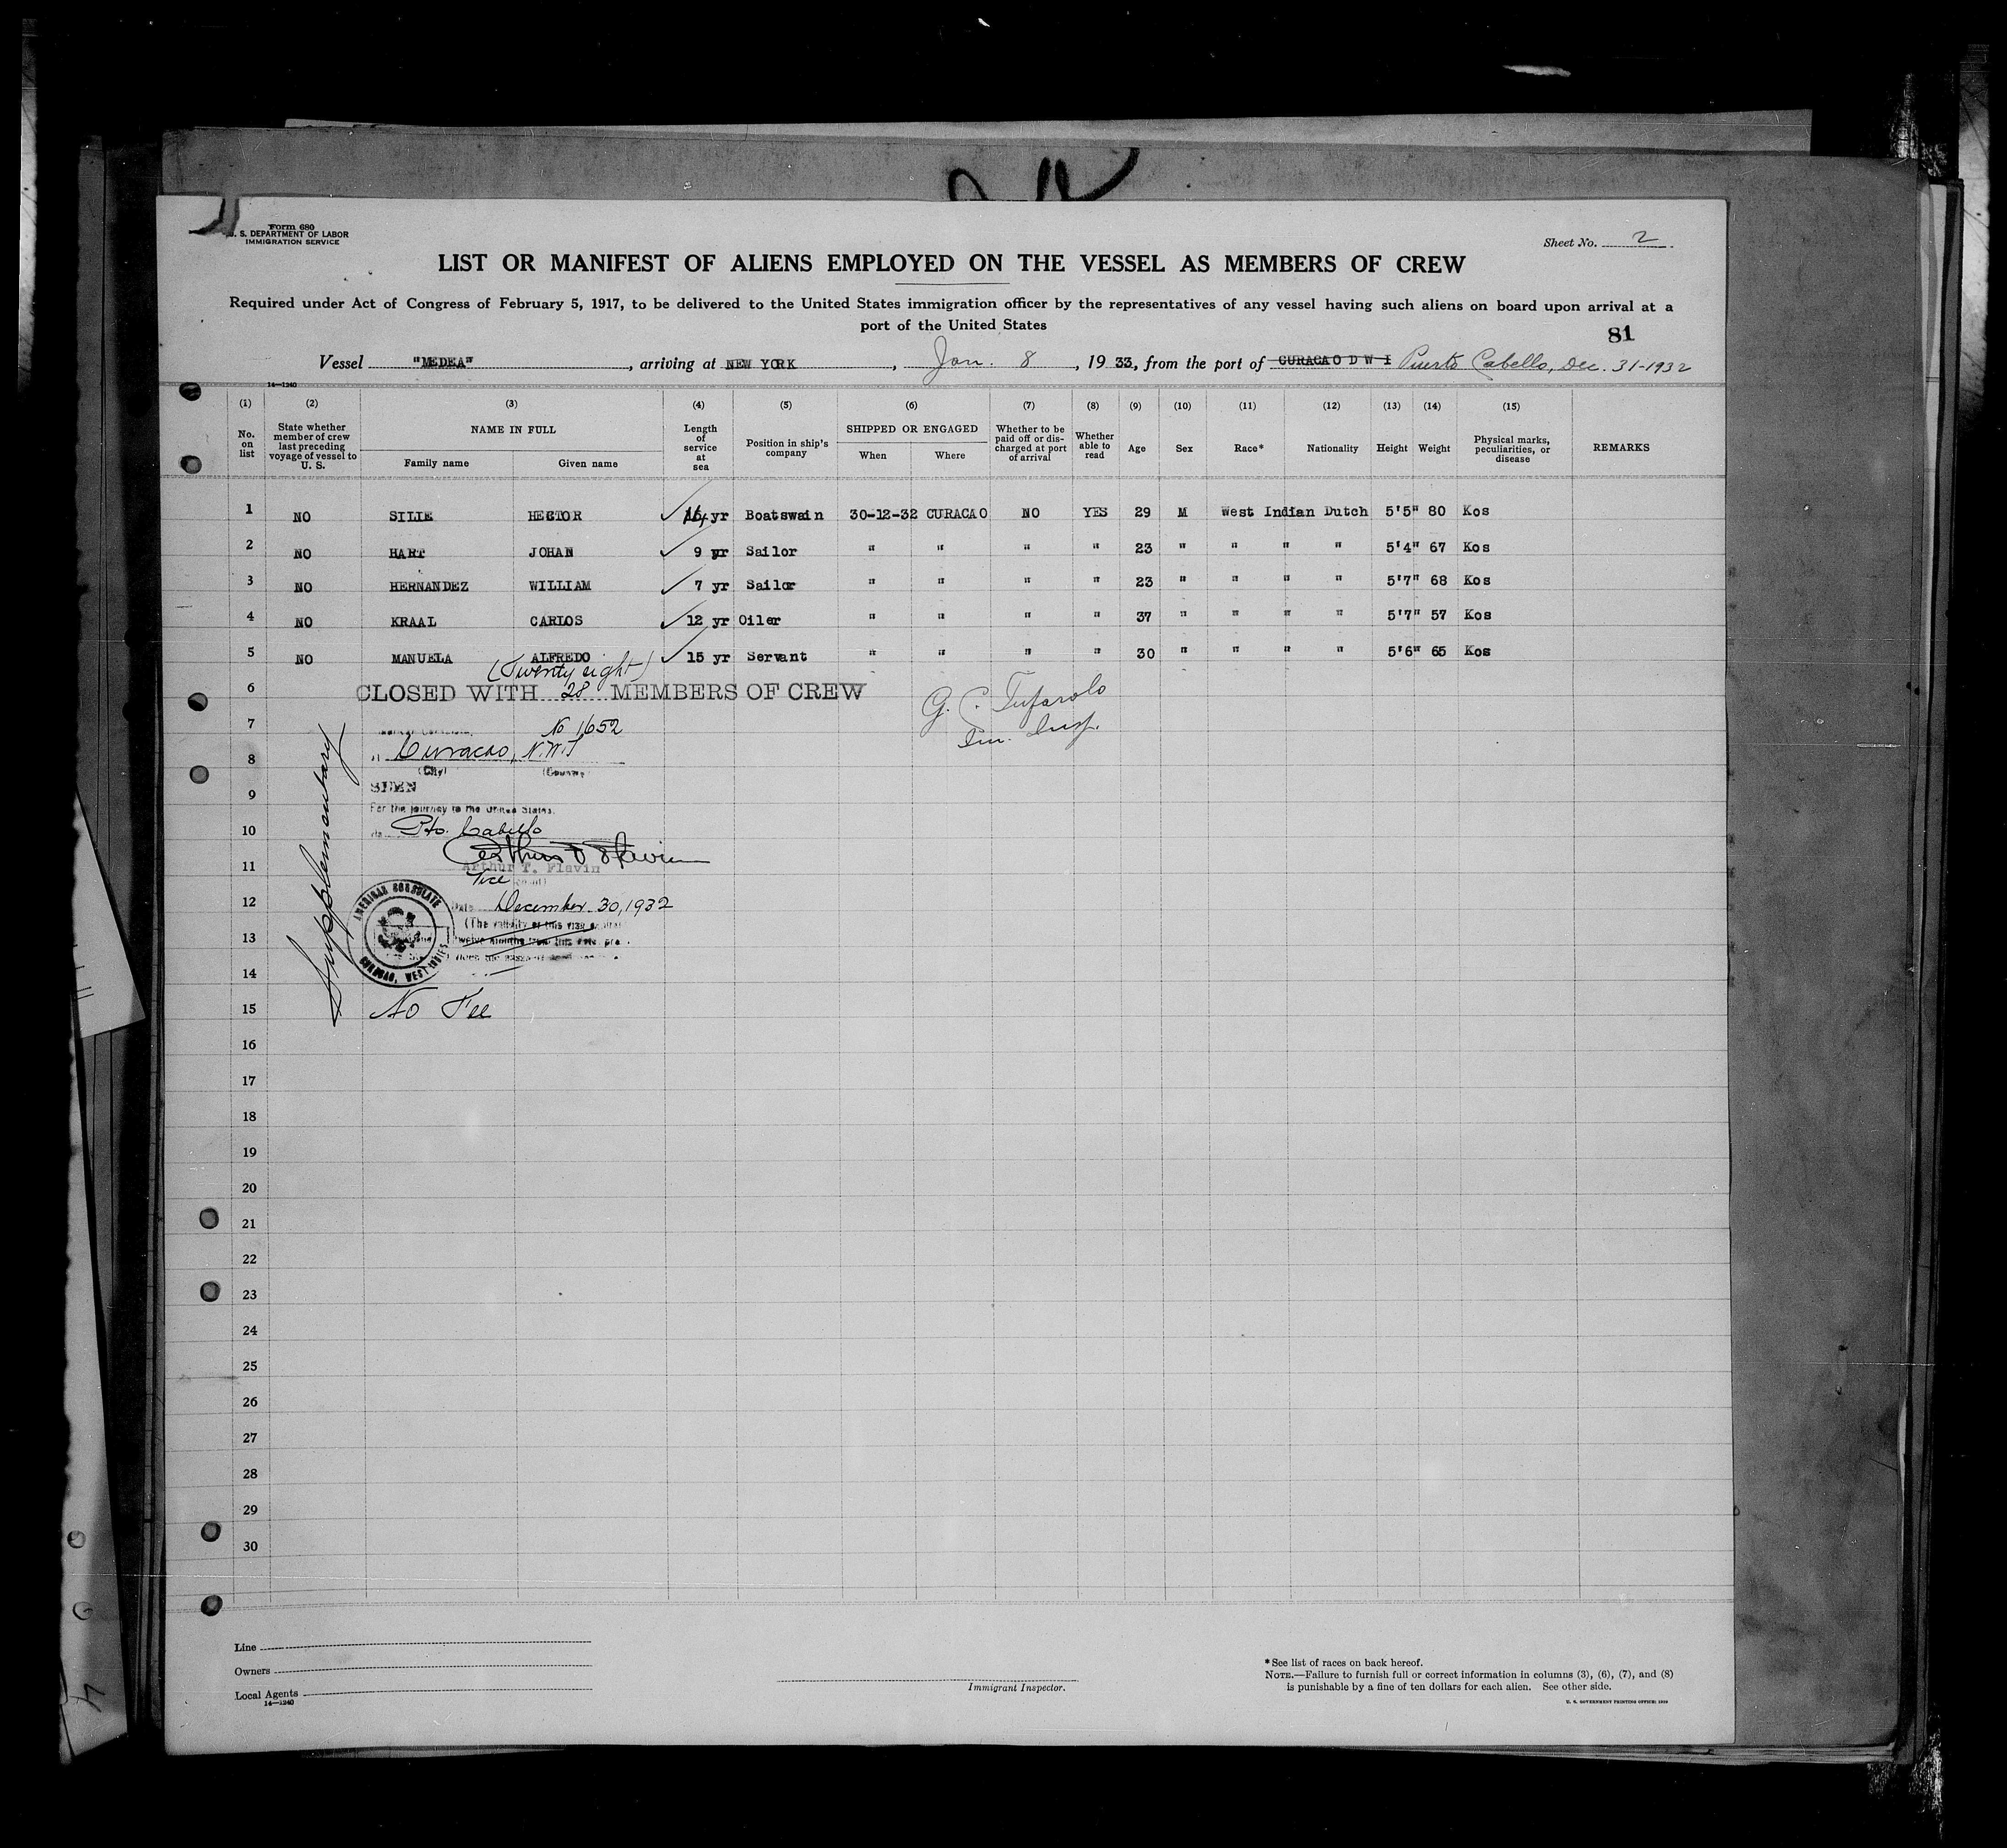 Form 680
U. S. DEPARTMENT OF LABOR
IMMIGRATION SERVICE
Sheet No. 2
LIST OR MANIFEST OF ALIENS EMPLOYED ON THE VESSEL AS MEMBERS OF CREW
Required under Act of Congress of February 5, 1917, to be delivered to the United States immigration officer by the representatives of any vessel having such aliens on board upon arrival at a
port of the United States
81
Vessel "MEDEA", arriving at NEW YORK, Jan. 8, 1933, from the port of CURACAO D W I Puerto Cabello, Dec. 31-1932
14—1240
(1) (2) (3) (4) (5) (6) (7) (8) (9) (10) (11) (12) (13) (14) (15)
No. on list
State whether member of crew last preceding voyage of vessel to U. S.
NAME IN FULL
Family name
Given name
Length of service at sea
Position in ship's company
SHIPPED OR ENGAGED
When
Where
Whether to be paid off or discharged at port of arrival
Whether able to read
Age
Sex
Race*
Nationality
Height
Weight
Physical marks, peculiarities, or disease
REMARKS
1 NO SILIE HECTOR yr Boatswain 30-12-32 CURACAO NO YES 29 M West Indian Dutch 5'5" 80 Kos
2 NO HART JOHAN 9 yr Sailor " " " " 23 " " " " 5'4" 67 Kos
3 NO HERNANDEZ WILLIAM 7 yr Sailor " " " " 23 " " " " 5'7" 68 Kos
4 NO KRAAL CARLOS 12 yr Oiler " " " " 37 " " " " 5'7" 57 Kos
5 NO MANUELA ALFREDO 15 yr Servant " " " " 30 " " " " 5'6" 65 Kos
(Twenty eight)
6 CLOSED WITH 28 MEMBERS OF CREW
G. C. Tufarolo
Im. Insp.
7 No 1652
8 Curacao, N.W.I
(City) (Country)
9 SEEN
For the journey to the United States.
10 Pto. Cabello
11 Arthur T. Flavin
Vice
12 Date December 30, 1932
(The validity of this visa
13 twelve months from this date
14
AMERICAN CONSULATE
CURACAO, WEST INDIES
Supplementary
15 No Fee
16
17
18
19
20
21
22
23
24
25
26
27
28
29
30
Line
Owners
Local Agents
14—1240
Immigrant Inspector.
* See list of races on back hereof.
NOTE.—Failure to furnish full or correct information in columns (3), (6), (7), and (8)
is punishable by a fine of ten dollars for each alien. See other side.
U. S. GOVERNMENT PRINTING OFFICE: 1930